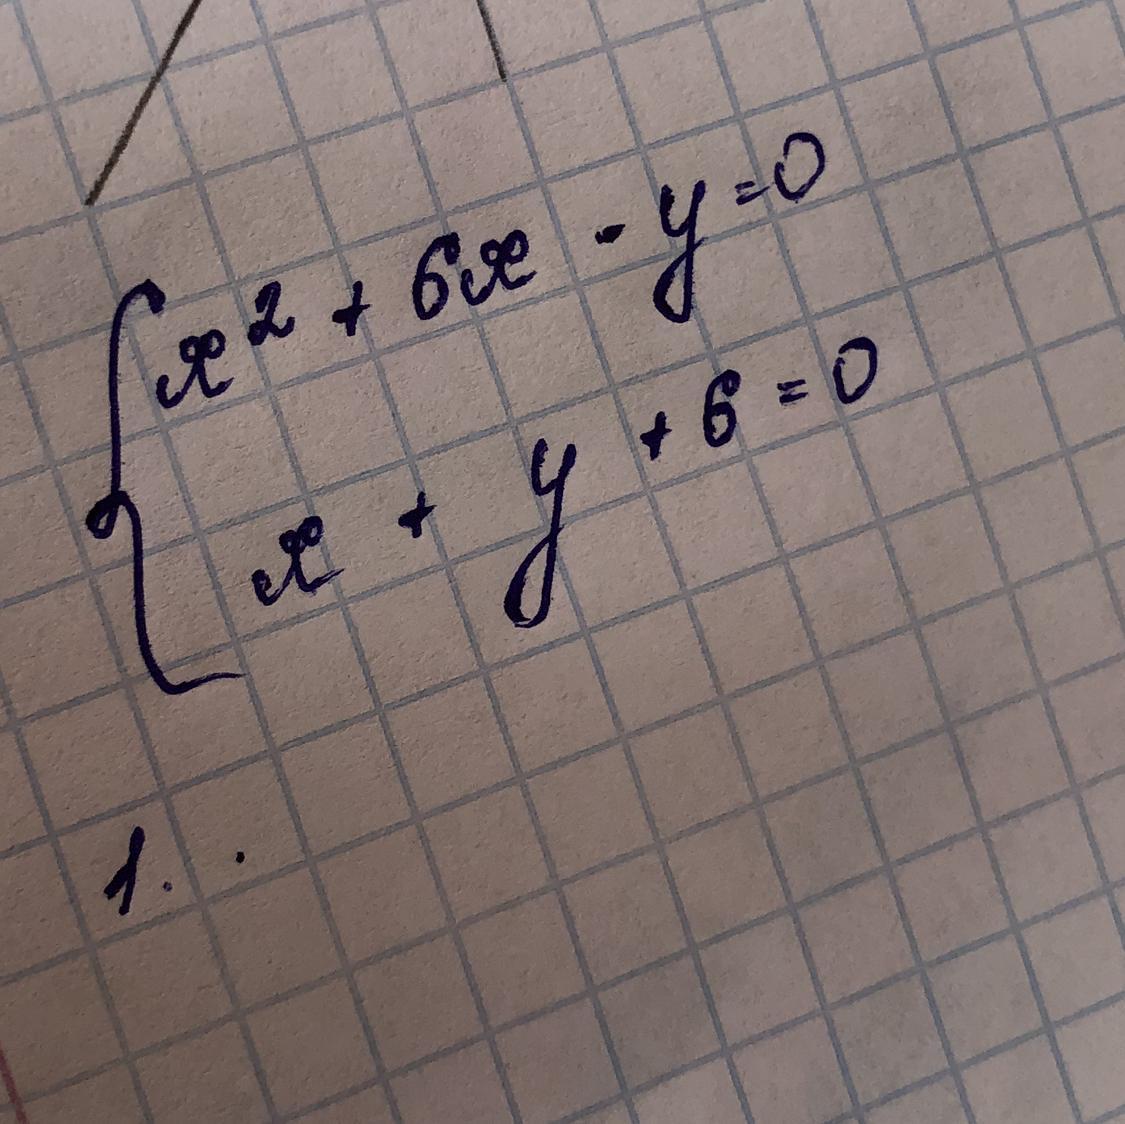 x² + 6x - y = 0
x + y + 6 = 0
1.